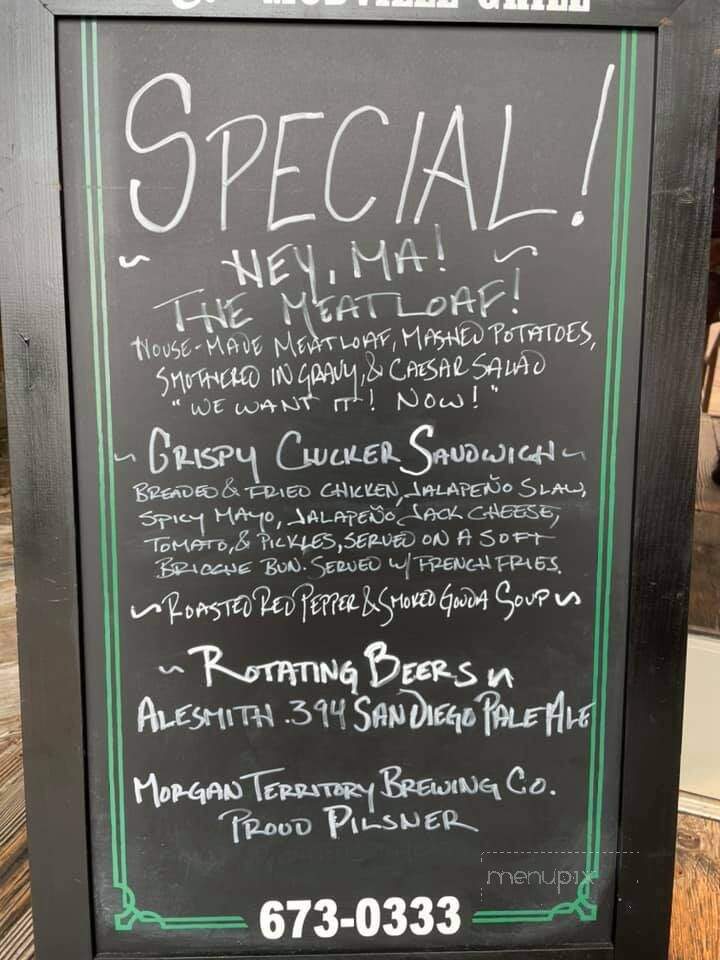 SPECIAL!
~ HEY, MA! ~
THE MEATLOAF!
HOUSE-MADE MEATLOAF, MASHED POTATOES,
SMOTHERED IN GRAVY, & CAESAR SALAD
"WE WANT IT! NOW!"
~ CRISPY CLUCKER SANDWICH ~
BREADED & FRIED CHICKEN, JALAPEÑO SLAW,
SPICY MAYO, JALAPEÑO JACK CHEESE,
TOMATO, & PICKLES, SERVED ON A SOFT
BRIOCHE BUN. SERVED W/ FRENCH FRIES.
~ ROASTED RED PEPPER & SMOKED GOUDA SOUP ~
~ ROTATING BEERS ~
ALESMITH .394 SAN DIEGO PALE ALE
MORGAN TERRITORY BREWING CO.
PROUD PILSNER
menupix
673-0333